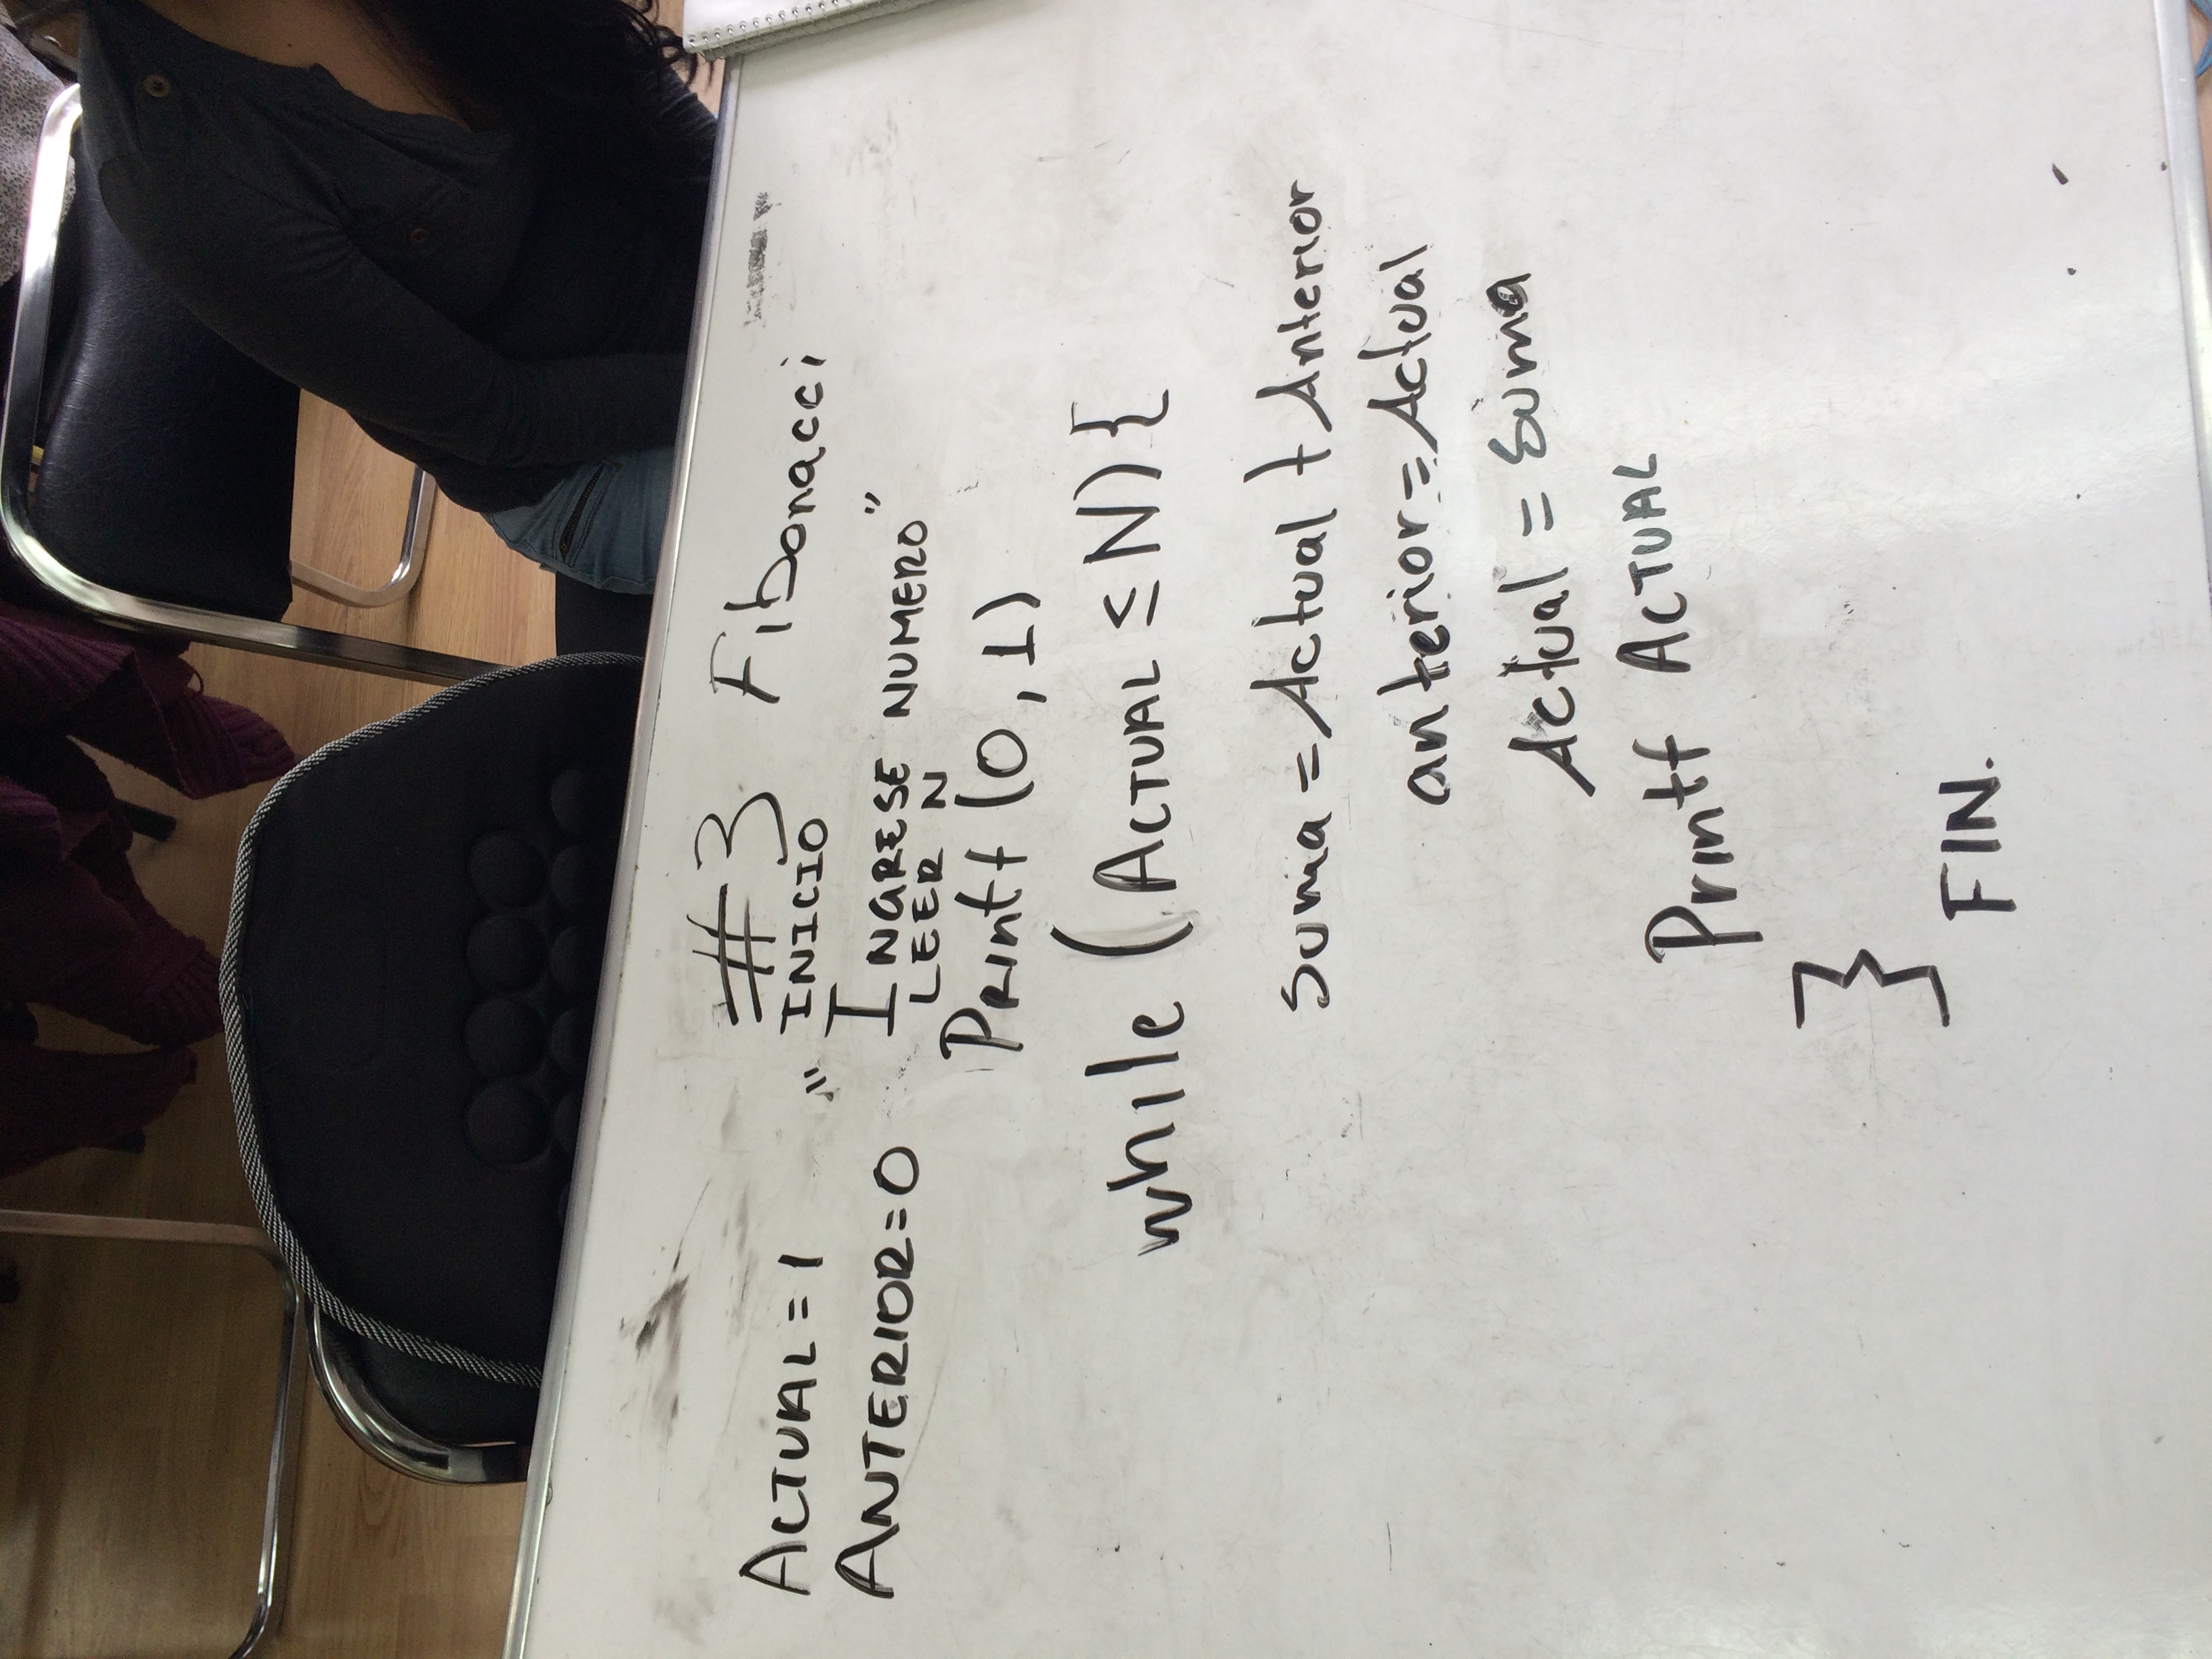 #3 Fibonacci
ACTUAL = 1
ANTERIOR = 0
INICIO
" INGRESE NUMERO "
LEER N
Printf (0, 1)
while (ACTUAL ≤ N) {
suma = Actual + Anterior
anterior = Actual
Actual = suma
Printf ACTUAL
}
FIN.